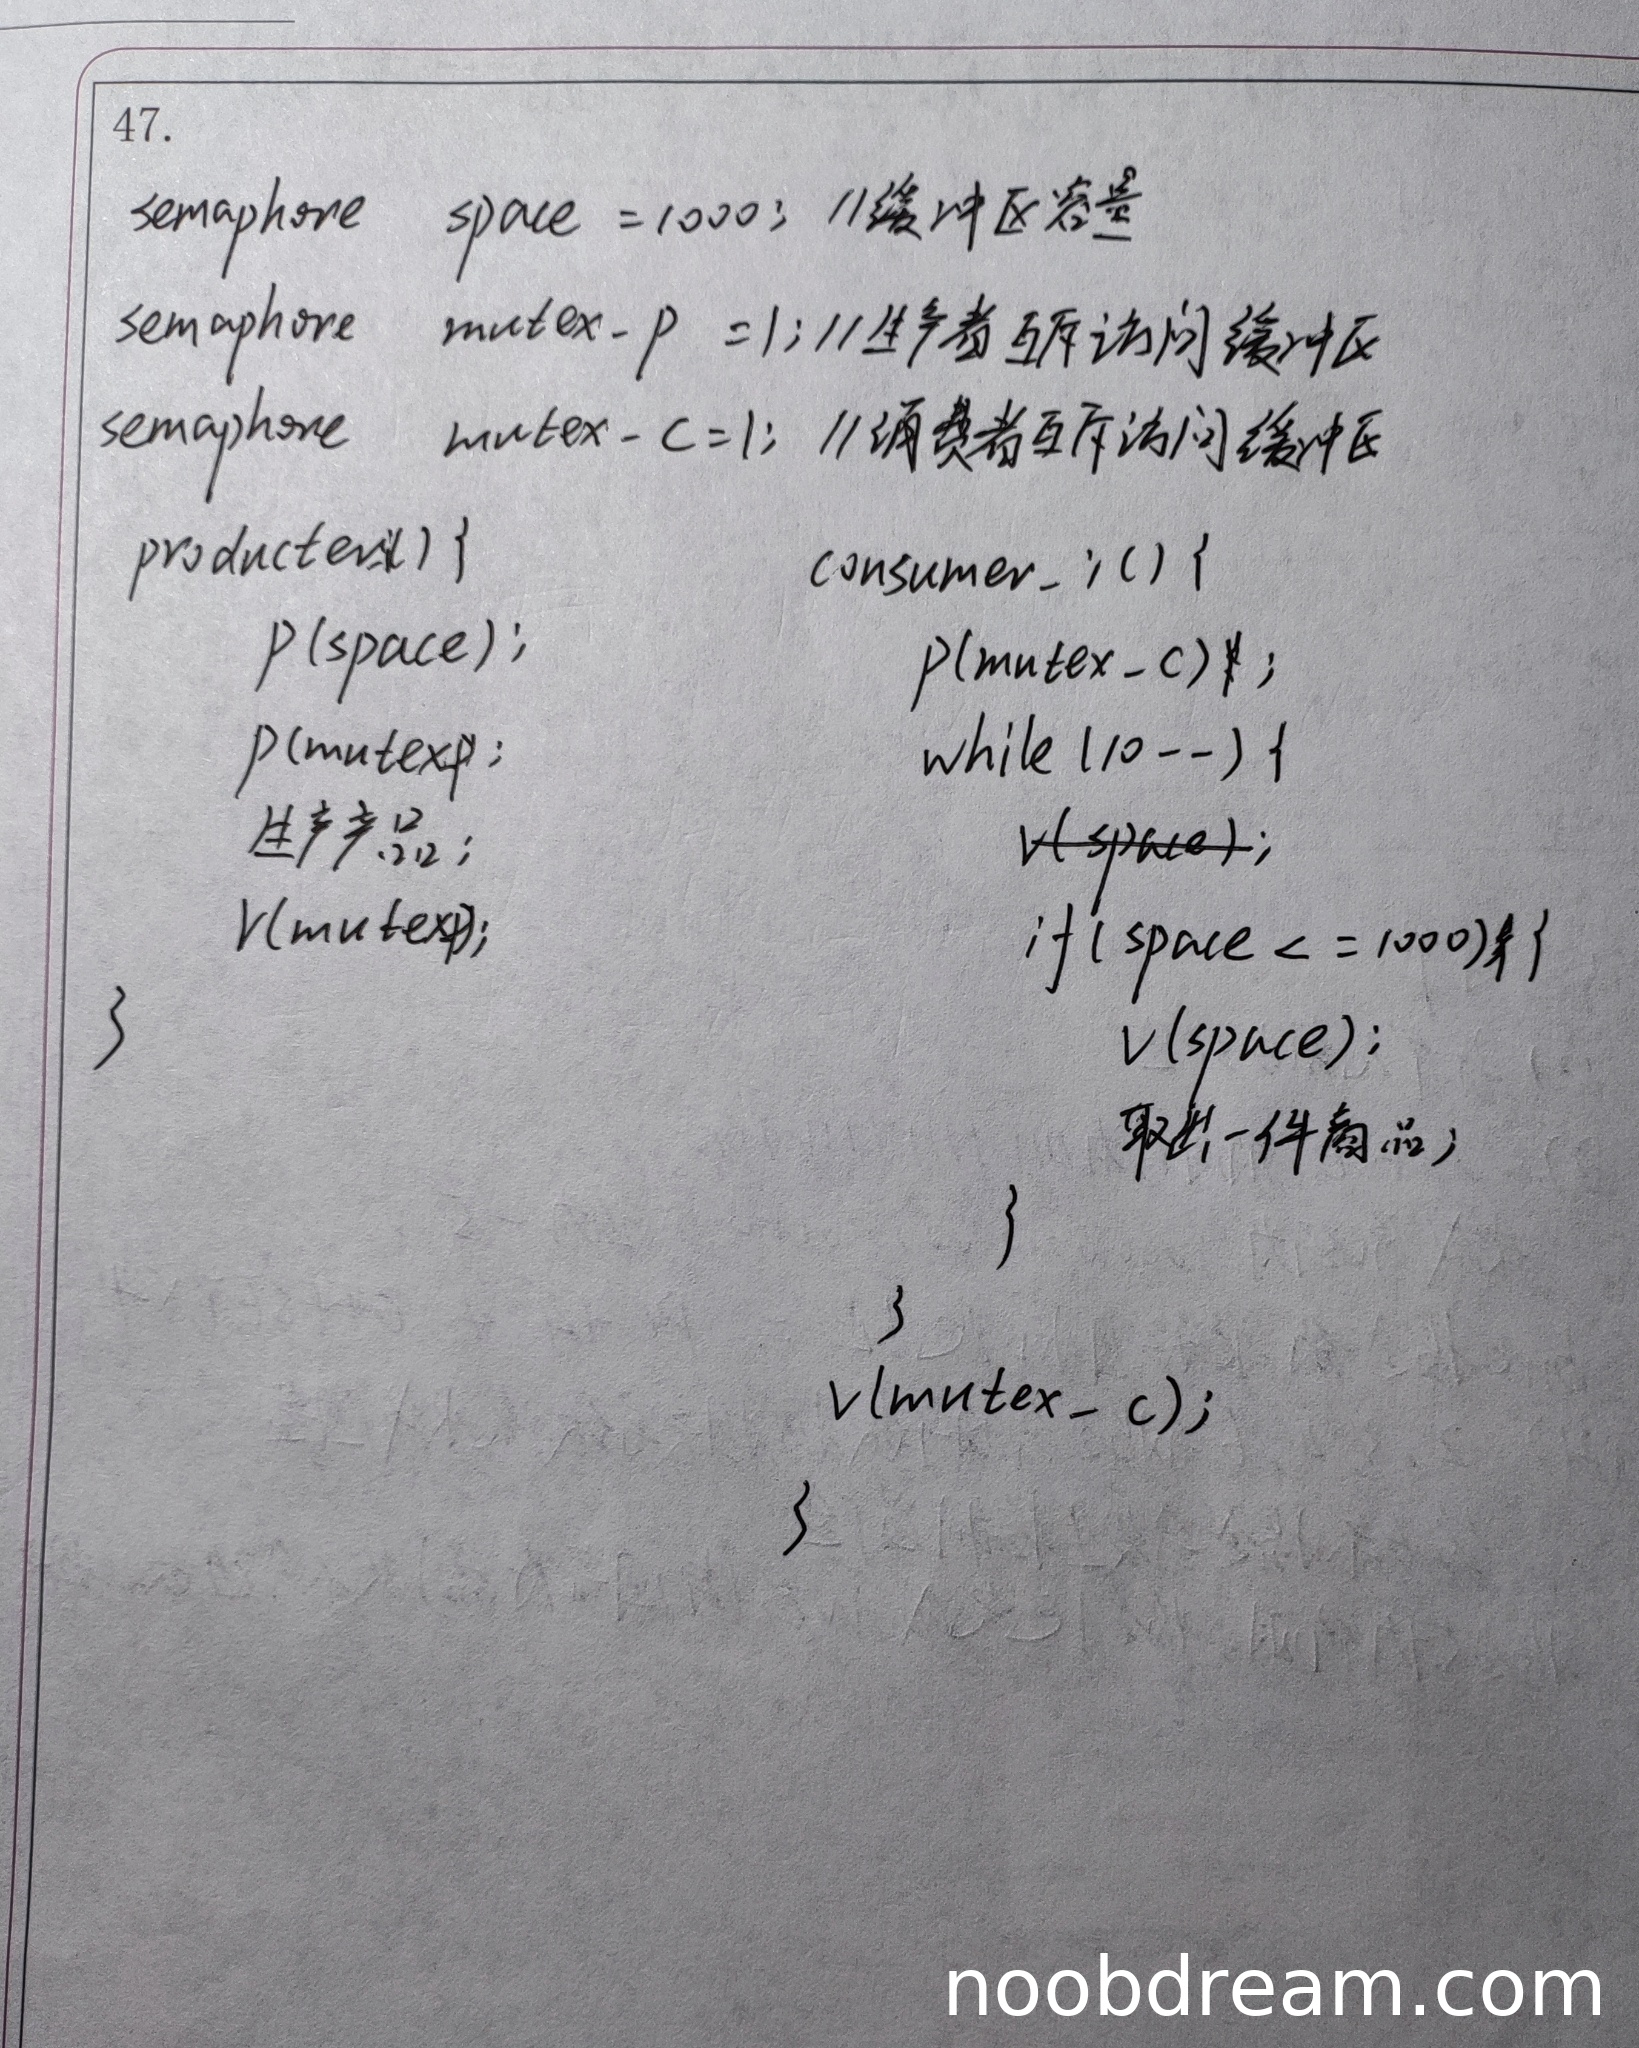 47.
semaphore space = 1000; //缓冲区容量
semaphore mutex-p =1; //生产者互斥访问缓冲区
semaphore mutex-c=1; //消费者互斥访问缓冲区
producter() {
p(space);
p(mutexp);
生产产品;
V(mutexp);
}
consumer_i() {
p(mutex-c);
while (10--) {
v(space);
if( space <=1000) {
v(space);
取出一件商品;
}
}
v(mutex-c);
}
noobdream.com